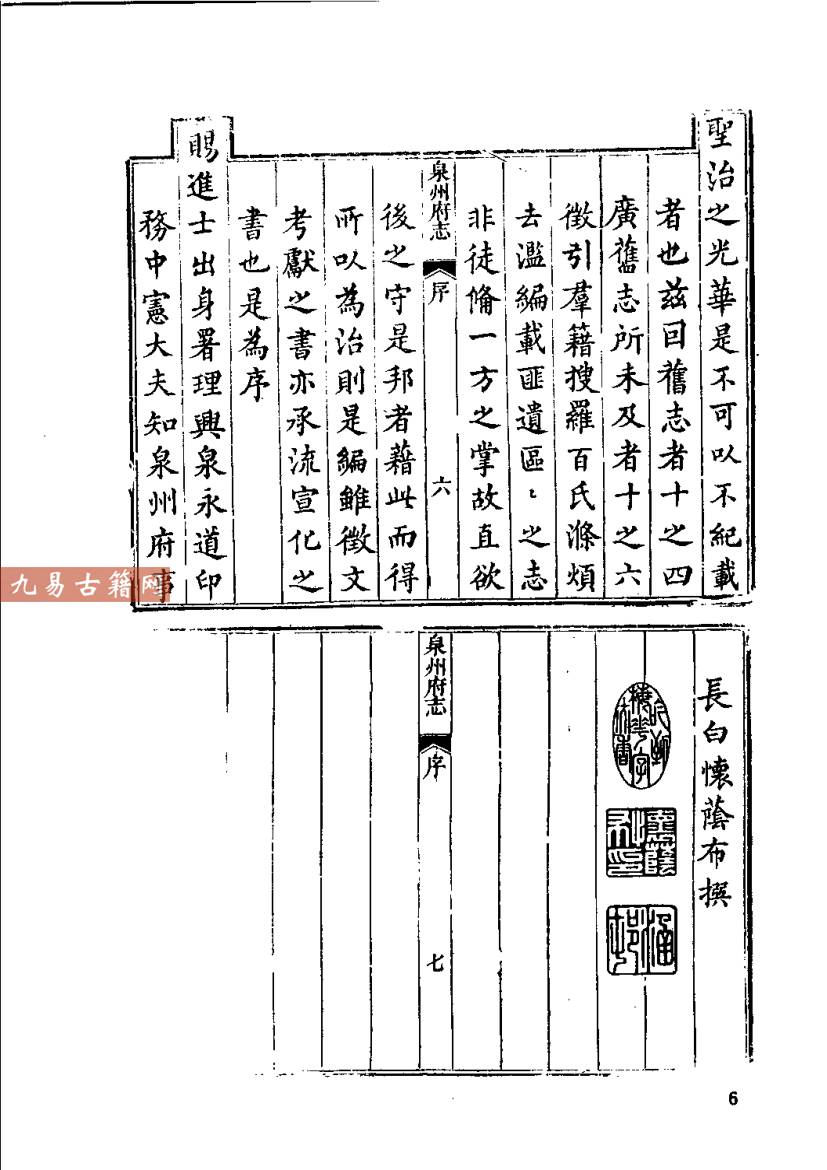 聖治之光華是不可以不紀載
者也茲因舊志者十之四
廣舊志所未及者十之六
徵引羣籍搜羅百氏滌煩
去濫編載匪遺區〻之志
非徒脩一方之掌故直欲
泉州府志
序
六
後之守是邦者藉此而得
所以為治則是編雖徵文
考獻之書亦承流宣化之
書也是為序
賜進士出身署理興泉永道印
務中憲大夫知泉州府事
九易古籍网
長白懷蔭布撰
泉州府志
序
七
6